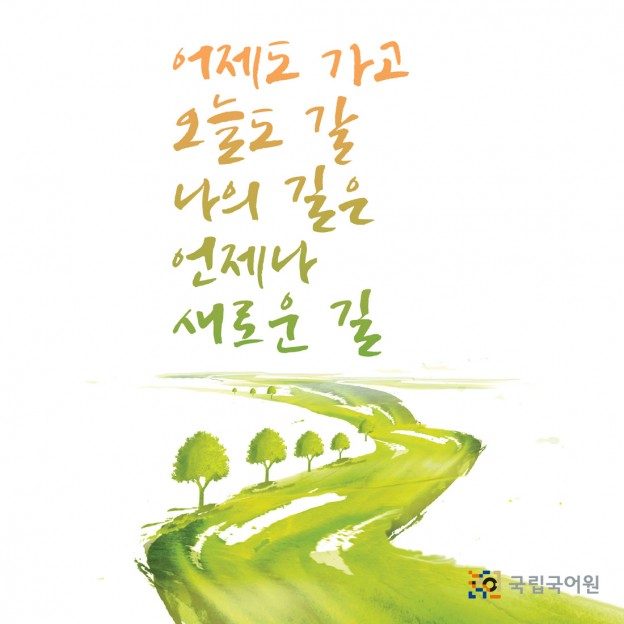 어제도 가고
오늘도 갈
나의 길은
언제나
새로운 길
국립국어원